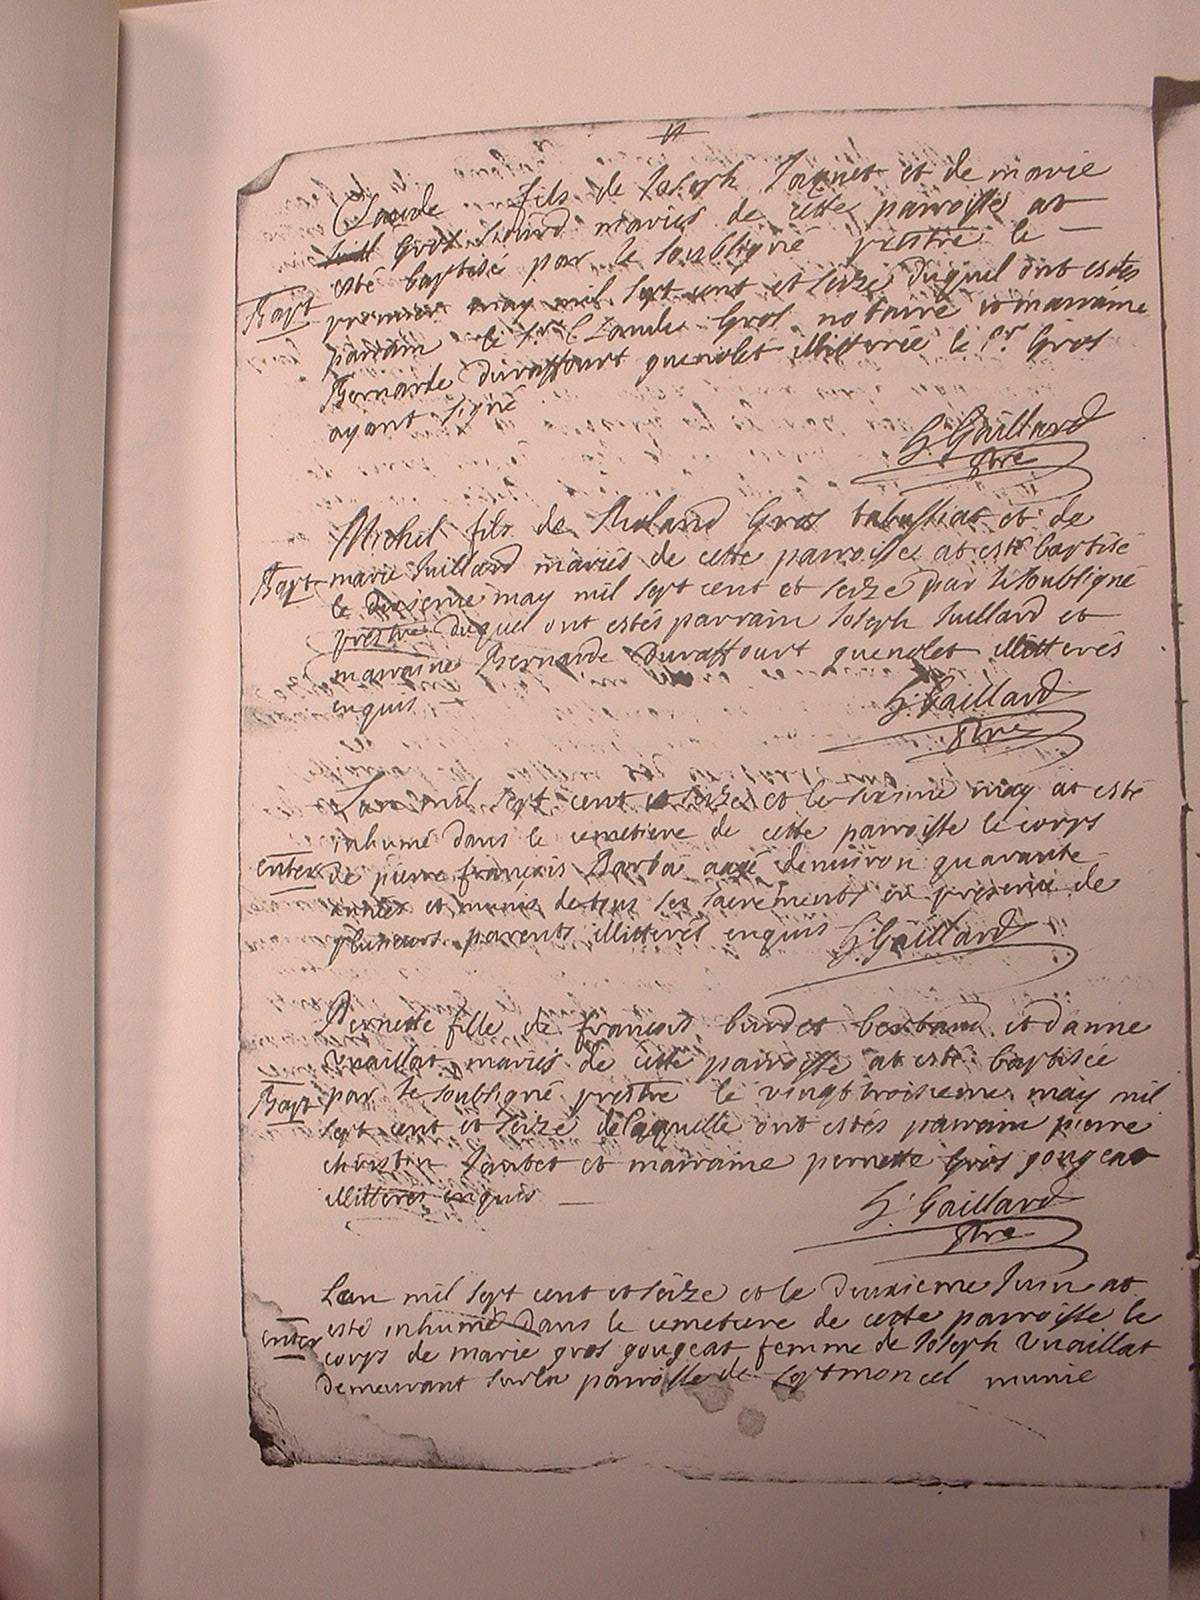 Claude fils de Joseph Jaquet et de marie
Gros Lourd mariés de cette parroisse at
esté baptisé par le soubsigné prestre le —
Bapt premier may mil sept cent et seize duquel ont estés
parrain le sr Claude Gros notaire et marraine
Bernarde duraffourt quenolet illitterée le sr Gros
ayant signé
G. Gaillard
ptre
Michel fils de Roland Gros tabussiat et de
Bapt marie Juillard mariés de cette parroisse at esté baptisé
le dixieme may mil sept cent et seize par le soubsigné
prestre duquel ont estés parrain Joseph Juillard et
marraine Bernarde Duraffourt quenolet illitterés
enquis
G. Gaillard
ptre
Lan mil sept cent et seize et le may at esté
inhumé dans le cemetiere de cette parroisse le corps
enter de pierre françois Barba aagé denviron quarante
années et munis de tous ses sacrements en presence de
plusieurs parents illitterés enquis G. Gaillard
Pernette fille de françois burdet et danne
Vuaillat mariés de cette parroisse at esté baptisée
Bapt par le soubsigné prestre le vingt troisieme may mil
sept cent et seize de laquelle ont estés parrain pierre
christin et marraine pernette Gros gougeat
illitterés enquis —
G. Gaillard
ptre
Lan mil sept cent et seize et le deuxieme Juin at
enter esté inhumé dans le cemetiere de cette parroisse le
corps de marie gros gougeat femme de Joseph Vuaillat
demeurant sur la parroisse de septmoncel munie